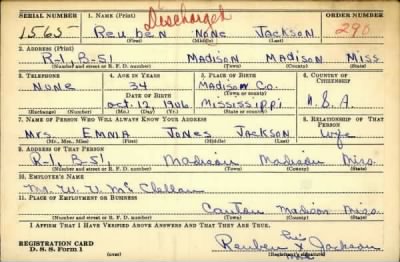 SERIAL NUMBER 1. NAME (Print) ORDER NUMBER
Discharged
1565 Reuben None Jackson 290
(First) (Middle) (Last)
2. ADDRESS (Print)
R-1, B-51, Madison Madison Miss.
(Number and street or R. F. D. number) (Town) (County) (State)
3. TELEPHONE 4. AGE IN YEARS 5. PLACE OF BIRTH 6. COUNTRY OF CITIZENSHIP
None 34 Madison Co.
DATE OF BIRTH (Town or county)
Oct. 12, 1906 Mississippi U.S.A.
(Exchange) (Number) (Mo.) (Day) (Yr.) (State or country)
7. NAME OF PERSON WHO WILL ALWAYS KNOW YOUR ADDRESS 8. RELATIONSHIP OF THAT PERSON
Mrs Emma Jones Jackson Wife
(Mr., Mrs., Miss) (First) (Middle) (Last)
9. ADDRESS OF THAT PERSON
R-1, B-51, Madison Madison Miss.
(Number and street or R. F. D. number) (Town) (County) (State)
10. EMPLOYER'S NAME
Mr. W. V. McClellan
11. PLACE OF EMPLOYMENT OR BUSINESS
Canton Madison Miss.
(Number and street or R. F. D. number) (Town) (County) (State)
I AFFIRM THAT I HAVE VERIFIED ABOVE ANSWERS AND THAT THEY ARE TRUE.
REGISTRATION CARD
D. S. S. Form 1 (over) Reuben X Jackson
(Registrant's signature)